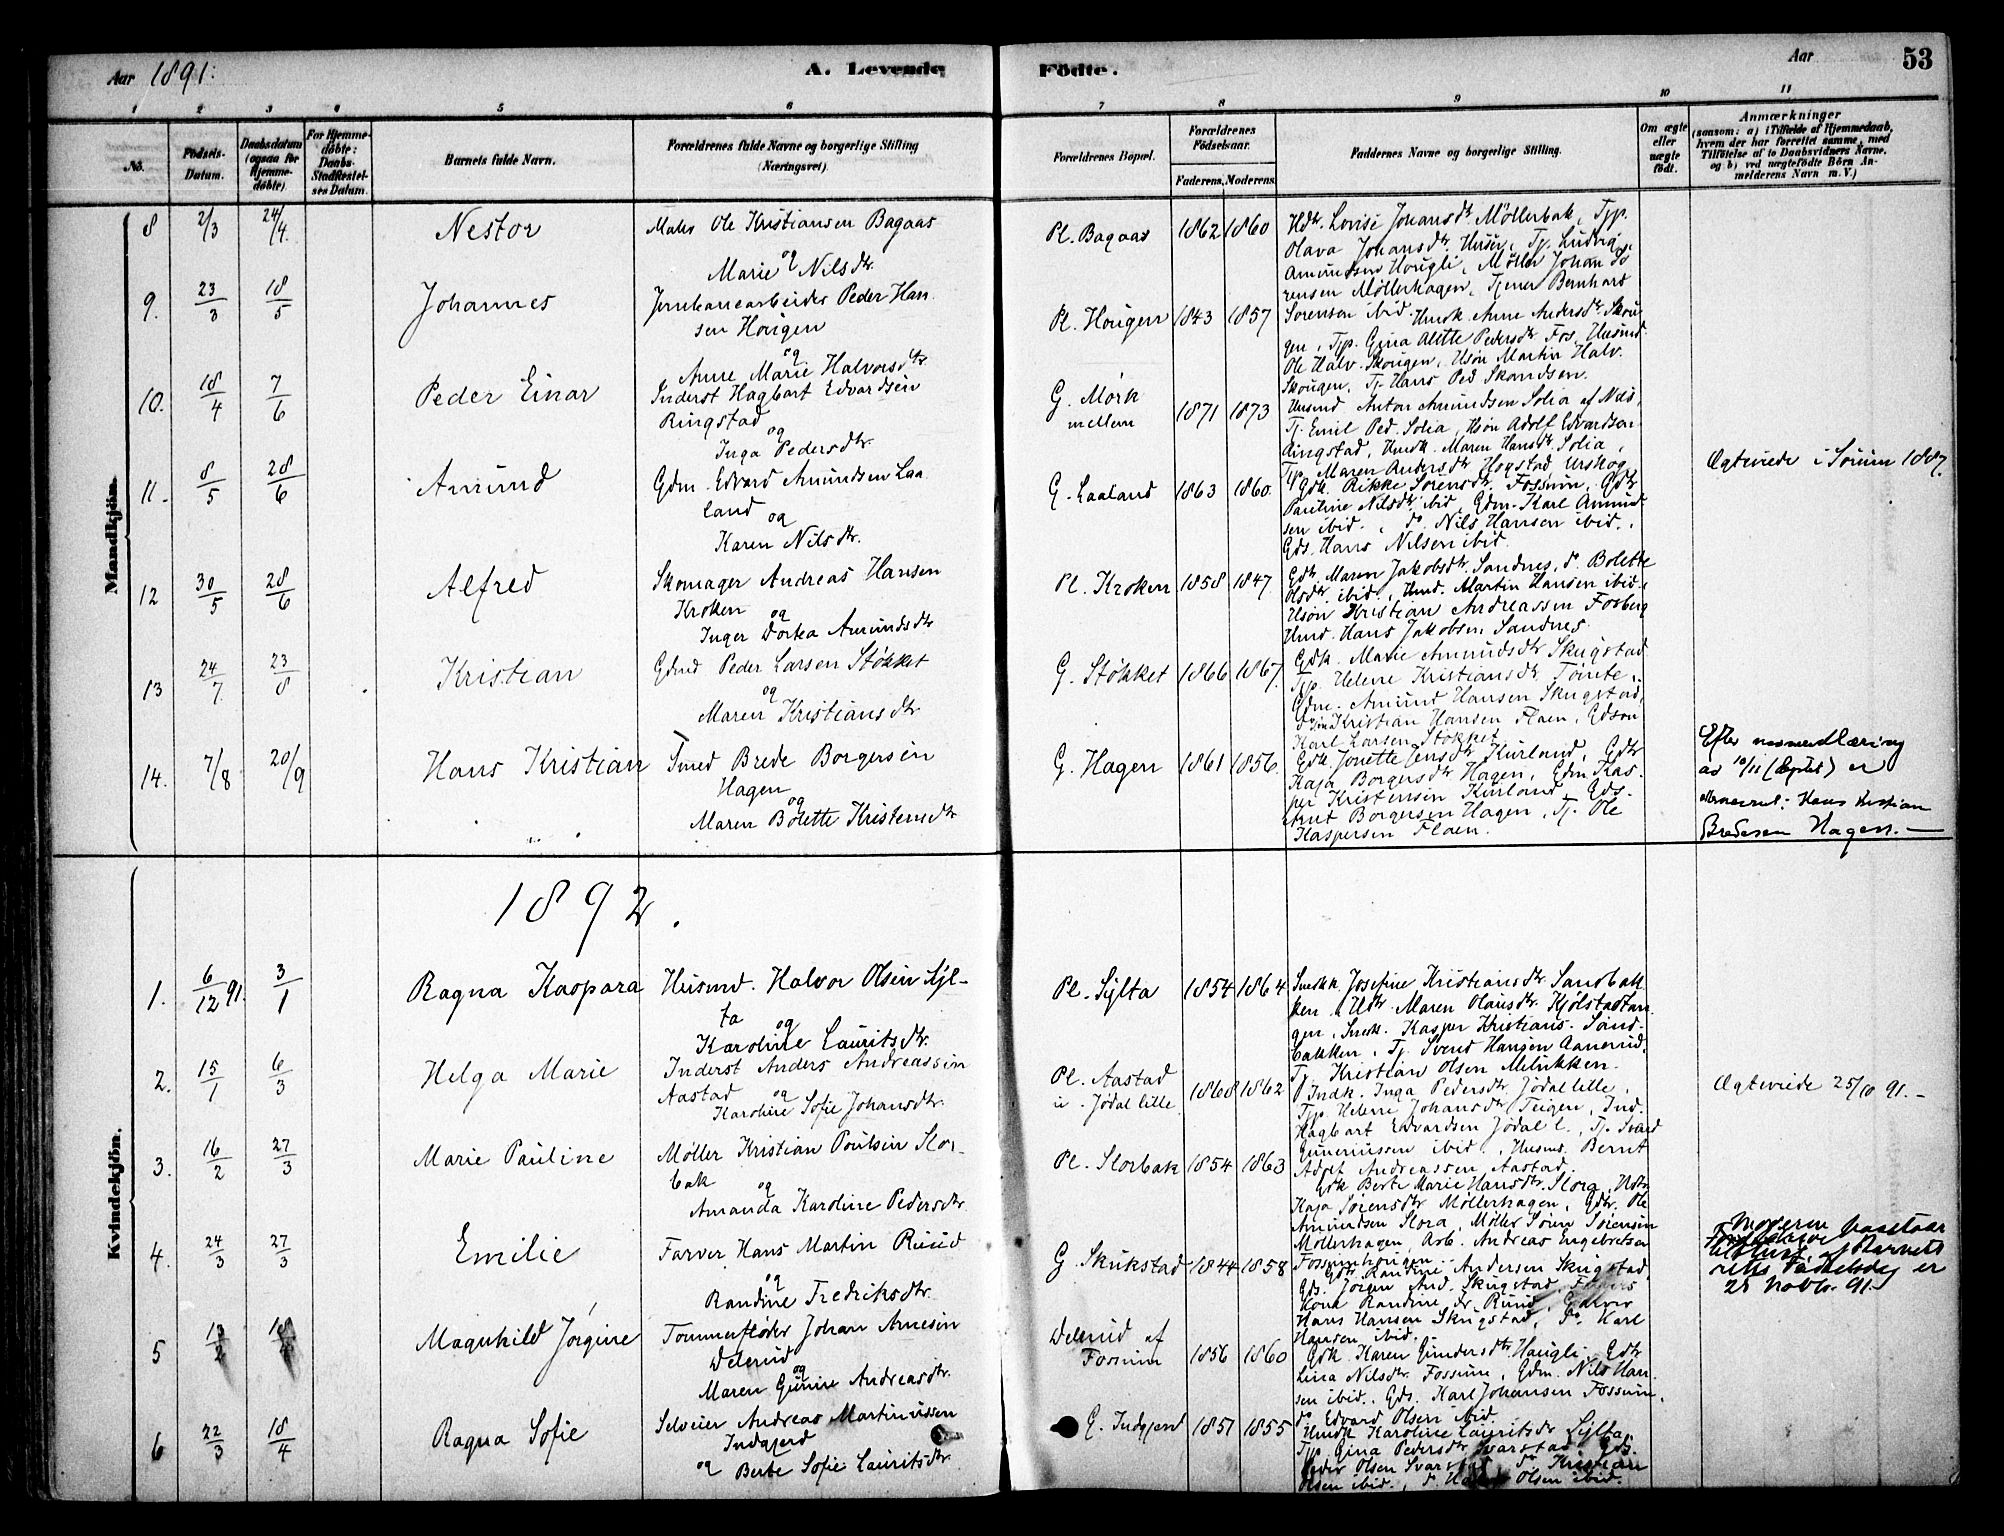 Aar 1891.
A. Levende
Födte.
Aar
53
1 2 3 4 5 6 7 8 9 10 11
No.
Födsels-Datum.
Daabsdatum (ogsaa for Hjemmedöbte)
For Hjemmedöbte: Daabs-Stadfæstelses Datum.
Barnets fulde Navn.
Forældrenes fulde Navne og borgerlige Stilling (Næringsvei).
Forældrenes Bopæl.
Forældrenes Födselsaar.
Faderens.
Moderens.
Faddernes Navne og borgerlige Stilling.
Om ægte eller uægte födt.
Anmærkninger
(saasom: a) i Tilfælde af Hjemmedaab, hvem der har forrettet samme, med Tilföielse af to Daabsvidners Navne, og b) ved uægtefödte Börn Anmelderens Navn m. V.)
Mandkjön.
8 2/3 24/4 Nestor
Maler Ole Kristiansen Bagaas
og
Marie Nilsdtr.
Pl. Bagaas 1862 1860
Hdtr. Lovise Johansdtr Møllerbak, Tjp.
Olava Johansdtr. Huser, Tj. Ludvig
Amundsen Hougli, Møller Johan Sø
rensen Møllerhagen, Tjener Bernhard
Sorensen ibid.
9. 23/3 18/5 Johannes
Jernbanearbeider Peder Han
sen Hougen
og
Anne Marie Halvorsdtr
Pl. Hougen 1843 1857
Husk. Anne Andersdtr. Skou
gen, Tjp. Gina Alette Pedersdtr Fos, Husmd
Ole Halv. Skougen, Hsøn Martin Halv.
Skougen, Tj. Hans Ped Skandsen.
10. 18/4 7/6 Peder Einar
Inderst Hagbart Edvardsen
Ringstad
og
Inga Pedersdtr.
G. Mørk
mellem
1871 1873
Husmd Anton Amundsen Solia af Næs,
Tj. Emil Ped. Solia, Hsøn Adolf Edvardsen
Ringstad, Husk. Maren Hansdtr Solia,
Tjp. Maren Andersdtr Hogstad Urskog
11. 8/5 28/6 Amund
Gdm. Edvard Amundsen Laa
land
og
Karen Nilsdtr.
G. Laaland 1863 1860
Gdk. Rikke Sorensdtr. Fossum, Gdtr
Pauline Nilsdtr ibid, Gdm. Karl Amund
sen ibid., do. Nils Hansen ibid.,
Gds. Hans Nilsen ibid.
Ægteviede i Sørum 1887.
12 30/5 28/6 Alfred
Skomager Andreas Hansen
Kroken
og
Inger Dortea Amundsdtr
Pl. Kroken 1858 1847
Gdtr. Maren Jakobsdtr. Sandnes, do Bolette
Olsdtr ibid., Hmd. Martin Hansen ibid.,
Hsøn Kristian Andreassen Fosberg
Hmd. Hans Jakobsen Sandnes.
13 24/7 23/8 Kristian
Gdmd Peder Larsen Støkket
og
Maren Kristiansdtr
G. Støkket 1866 1867.
Gdk. Marie Amundsdtr Skugstad
Tjp. Helene Kristiansdtr
Gdm. Amund Hansen Skugstad,
Kristian Hansen Floen, Gdsøn
Karl Larsen Støkket
14. 7/8 20/9 Hans Kristian
Smed Brede Borgersen
Hagen
og
Maren Bolette Kristensdtr
G. Hagen 1861 1856
Gdk. Jonette Jensdtr Kurland, Gdtr
Kaja Borgersdtr Hagen, Gdm. Kas-
per Kristensen Kurland, Gds.
Borgersen Hagen, Tj. Ole
Kaspersen Floen.
Efter
ad 10/11 er
: Hans Kristian
Bredesen Hagen. —
1892.
Kvindekjön.
1. 6/12 91. 3/1 Ragna Kaspara
Husmd. Halvor Olsen Syl-
ta
og
Karoline Lauritsdtr.
Pl. Sylta 1854 1864
Smedk. Josefine Kristiansdtr Sandbak
ken, Hdtr. Maren Olausdtr. Kjølstadtan
gen, Smed. Kasper Kristians. Sand-
bakken, Tj. Svend Hansen Aanerud,
Tj. Kristian Olsen
2. 15/1 6/3 Helga Marie
Inderst Anders Andreassen
Aastad
og
Karoline Sofie Johansdtr.
Pl. Aastad
u. Jødal lille
1868 1862
Indk. Inga Pedersdtr Jødal lille,
Tjp. Helene Johansdtr Teigen, Ind.
Hagbart Edvardsen Jødal l., Tj.
Gunerinssen ibid., Husmd. Bernt
Adolf Andreassen Aastad.
Ægteviede 25/10 91. -
3. 16/2 27/3 Marie Pauline
Møller Kristian Poulsen Slor-
bak
og
Amanda Karoline Pedersdtr.
Pl. Slorbak 1854 1863
Gdk Berte Marie Hansdtr. Slora, Hdtr
Kaja Sørensdtr Møllerhagen, Gdbr. Ole
Amundsen Slora, Møller Søren Sørensen
Møllerhagen, Arb. Andreas Engebretsen
Fossumhougen
4. 24/3 27/3 Emilie
Farver Hans Martin Ruud
og
Randine Fredriksdtr.
G. Skukstad 1844 1858
Gdtr. Randine Andersen Skugstad,
Gds. Jørgen And. Skugstad,
Kona Randine Fr. Ruud,
Hans Hansen Skugstad, Do Karl
Hansen ibid.
Moderen
af Barnets
rette Fødselsdag er
25 Novbr. 91.
5 Magnhild Jørgine
Tømmerfløder Johan Arnesen
Delerud
og
Maren Gunine Andreasdtr.
Delerud af
Fossum
1856 1860
Gdk. Karen Gundersdtr. Haugli, Gdtr
Lina Nilsdtr. Fossum, Gdm. Nils Han
sen ibid., Gds. Karl Johansen Fossum,
do Edvard Olsen ibid.
6 22/3 18/4 Ragna Sofie
Selveier Andreas Martinussen
Indgjerd
og Berte Sofie Lauritsdtr.
G. Indgjerd 1857 1855
Husk Karoline Lauritsdtr Sylta,
Tjp. Gina Pedersdtr Svarstad, Gds.
Peder Olsen Svarstad, do Kristian
Olsen ibid., do. Olsen ibid.